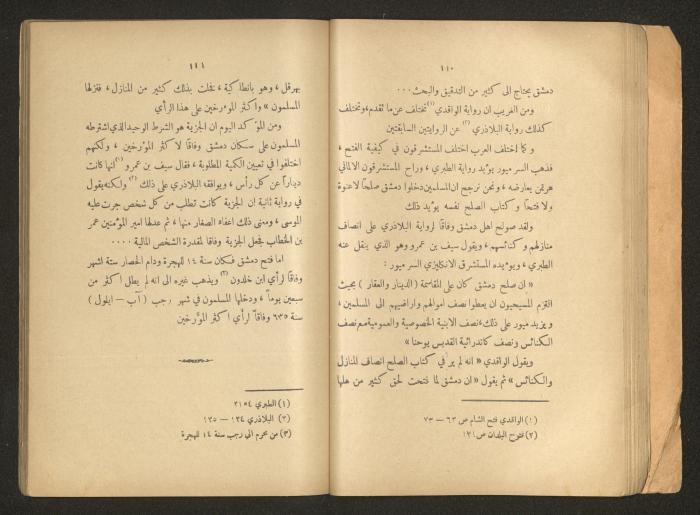 ١١٠
دمشق يحتاج الى كثير من التدقيق والبحث ...
ومن الغريب ان رواية الواقدي (١) تختلف عن ما تقدم، وتختلف
كذلك رواية البلاذري (٢) عن الروايتين السابقتين
وكما اختلف العرب اختلف المستشرقون في كيفية الفتح ،
فذهب السر ميور يؤيد رواية الطبري ، وراح المستشرقون الالماني
هرتمن يعارضه ، ونحن نرجح ان المسلمين دخلوا دمشق صلحاً لا عنوة
ولا فتحاً وكتاب الصلح نفسه يؤيد ذلك
ولقد صولح اهل دمشق وفاقاً لرواية البلاذري على انصاف
منازلهم وكنائسهم ، ويقول سيف بن عمرو وهو الذي ينقل عنه
الطبري ، ويؤيده المستشرق الانكليزي السر ميور :
« ان صلح دمشق كان على المقاسمة ( الدينار والعقار ) بحيث
التزم المسيحيون ان يعطوا نصف اموالهم واراضيهم الى المسلمين ،
ويزيد ميور على ذلك، نصف الابنية الخصوصية والعمومية مع نصف
الكنائس ونصف كاتدرائية القديس يوحنا »
ويقول الواقدي « انه لم ير في كتاب الصلح انصاف المنازل
والكنائس » ثم يقول « ان دمشق لما فتحت لحق كثير من هلها
(١) الواقدي فتح الشام ص ٦٣ — ٧٣
(٢) فتوح البلدان ص ١٢١
١١١
بهرقل ، وهو بانطاكية ، فخلت بذلك كثير من المنازل ، فنزلها
المسلمون » واكثر المؤرخين على هذا الرأي
ومن المؤكد اليوم ان الجزية هو الشرط الوحيد الذي اشترطه
المسلمون على سكان دمشق وفاقاً لاكثر المؤرخين ، ولكنهم
اختلفوا في تعيين الكمية المطلوبة ، فقال سيف بن عمرو (١) انها كانت
ديناراً عن كل رأس ، ويوافقه البلاذري على ذلك (٢) ولكنه يقول
في رواية ثانية ان الجزية كانت تطلب من كل شخص جرت عليه
الموسى ، ومعنى ذلك اعفاء الصغار منها ، ثم عدلها امير المؤمنين عمر
بن الخطاب فجعل الجزية وفاقا لمقدرة الشخص المالية ....
اما فتح دمشق فكان سنة ١٤ للهجرة ودام الحصار ستة اشهر
وفاقاً لرأي ابن خلدون (٣) ويذهب غيره الى انه لم يطل اكثر من
سبعين يوماً ، ودخلها المسلمون في شهر رجب ( آب — ايلول )
سنة ٦٣٥ وفاقاً لرأي اكثر المؤرخين
(١) الطبري ٢١٥٤
(٢) البلاذري ١٢٤ — ١٢٥
(٣) من محرم الى رجب سنة ١٤ للهجرة